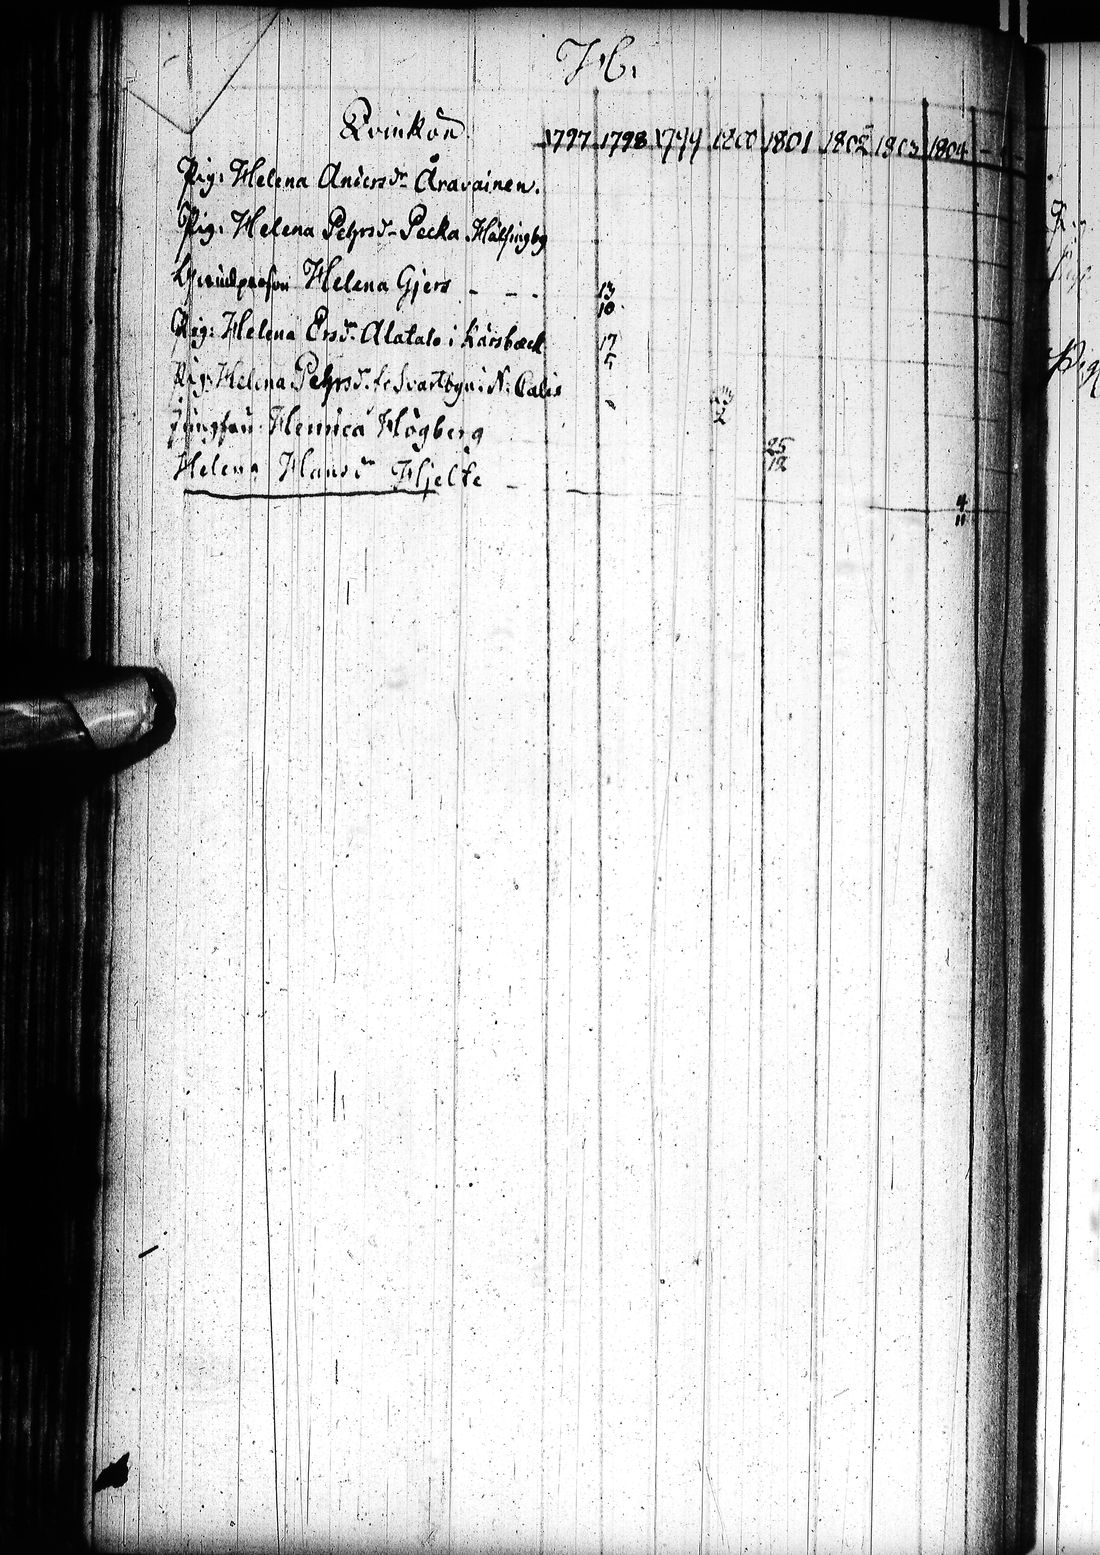 H.
Qvinkön 1797 1798 1799 1800 1801 1802 1803 1804
Pig: Helena Andersdr Äravainen.
Pig: Helena Pehrsdr Pecka Hälsingby
Helena Gjers - - - 13/10
Pig: Helena Ersdr Alatalo i Karsbäck 17/5
Pig: Helena Pehrsdr fr Svartbyn i N: Calix
Jungfru Henrica Högberg 25/12
Helena Hansdr Hjelte - 4/11